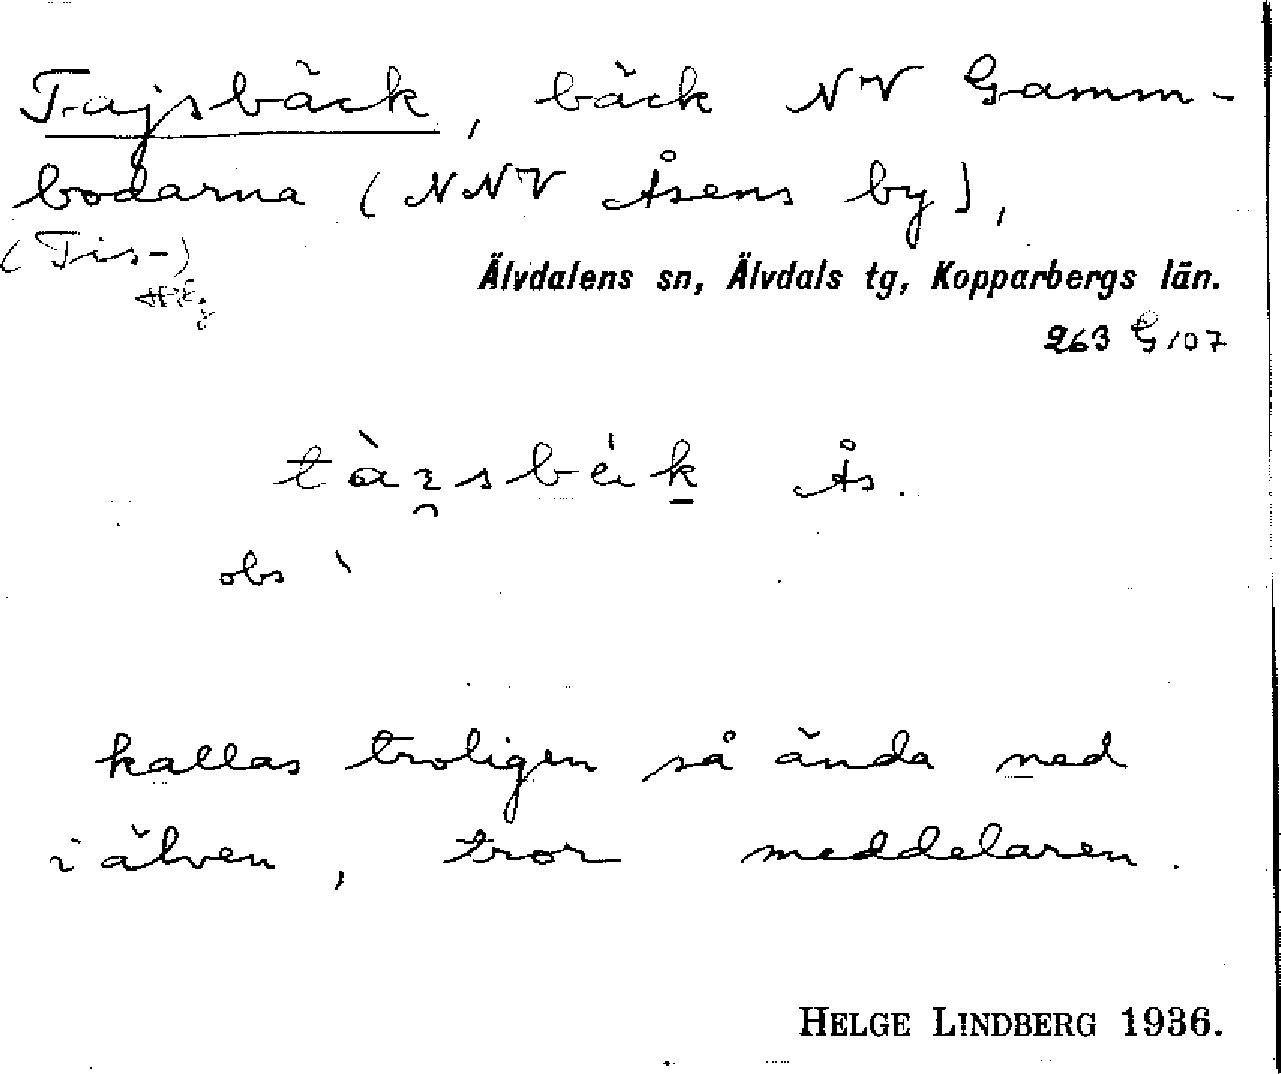 Tajsbäck, bäck NV Gamm-
bodarna (NNV Åsens by),
(Tis-)
Älvdalens sn, Älvdals tg, Kopparbergs län.
263 G 107
Ås.
obs `
kallas troligen så ända ned
i älven, tror meddelaren.
HELGE LINDBERG 1936.